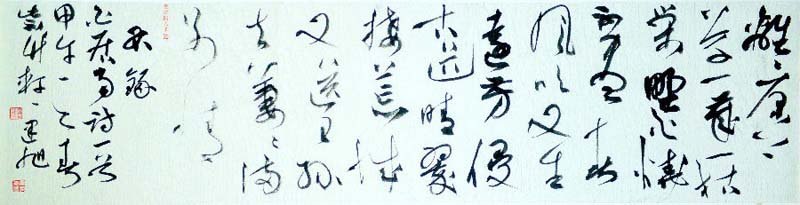 離離原上
草一歲一枯
榮野火燒
不盡春
風吹又生
遠芳侵
古道晴翠
接荒城
又送王孫
去萋萋滿
別情
右錄
白居易詩一首
甲午之春